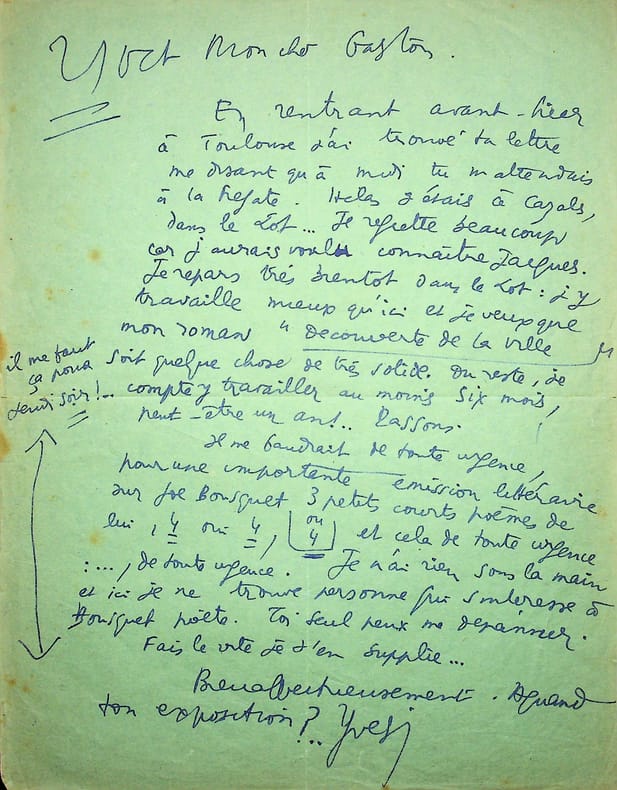 Mon cher Gaston.
En rentrant avant-hier
à Toulouse j'ai trouvé ta lettre
me disant qu'à midi tu m'attendais
à la fregate. Helas j'étais à Cazals,
dans le Lot... Je regrette beaucoup
car j'aurais voulu connaître Jacques.
Je repars très bientot dans le Lot : j'y
travaille mieux qu'ici et je veux que
mon roman "Decouverte de la ville"
soit quelque chose de très solide. Du reste, je
compte y travailler au moins six mois,
peut-être un an!.. Passons.
il me faut
ça pour
jeudi soir!..
Il me faudrait de toute urgence,
pour une importante emission littéraire
sur Joe Bousquet 3 petits courts poèmes de
lui, 4 oui 4, ou 4 et cela de toute urgence
:..., de toute urgence. Je n'ai rien sous la main
et ici je ne trouve personne qui s'interesse à
Bousquet poète. Toi seul peux me depanner.
Fais le vite je t'en supplie...
Bien affectueusement. A quand
ton exposition?... Yves